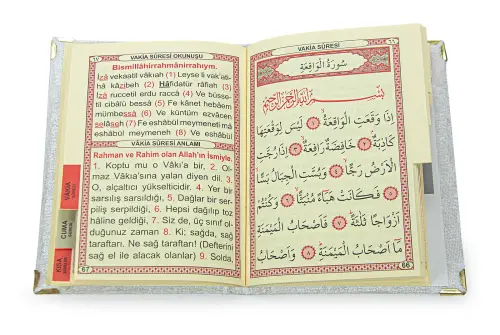 ٦٧
VAKİA SÛRESİ OKUNUŞU
Bismillâhirrahmânirrahıym.
İzâ vekaatil vâkıah (1) Leyse li vak'as-
hâ kâzibeh (2) Hâfidatür râfiah (3)
İzâ ruccetil erdu raccâ (4) Ve büsse-
til cibâlü bessâ (5) Fe kânet hebâen
mümbessâ (6) Ve küntüm ezvâcen
selâseh (7) Fe eshâbül meymeneti mâ
eshâbül meymeneh (8) Ve eshâbül
VAKİA SÛRESİ ANLAMI
Rahman ve Rahim olan Allah'ın ismiyle.
1. Koptu mu o Vâkı'a bir, 2. Ol-
maz Vâkıa'sına yalan diyen dil. 3.
O, alçaltıcı yükselticidir. 4. Yer bir
sarsılış sarsıldığı, 5. Dağlar bir ser-
piliş serpildiği, 6. Hepsi dağılıp toz
hâline geldiği. 7. Siz de, üç sınıf ol-
duğunuz zaman 8. Ki; sağda, sağ
taraftarı. Ne sağ taraftarı! (Defterini
sağ el ile alacak olanlar) 9. Solda,
67
VAKIA
CUMA
KISA
VAKIA SÛRESİ
٦٦
سُورَةُ الْوَاقِعَةِ
بِسْمِ اللهِ الرَّحْمٰنِ الرَّحِيمِ
اِذَا وَقَعَتِ الْوَاقِعَةُ ١ لَيْسَ لِوَقْعَتِهَا
كَاذِبَةٌ ٢ خَافِضَةٌ رَافِعَةٌ ٣ اِذَا رُجَّتِ
الْاَرْضُ رَجًّا ٤ وَبُسَّتِ الْجِبَالُ بَسًّا
٥ فَكَانَتْ هَبَاءً مُنْبَثًّا ٦ وَكُنْتُمْ
اَزْوَاجًا ثَلٰثَةً ٧ فَاَصْحَابُ الْمَيْمَنَةِ
مَا اَصْحَابُ الْمَيْمَنَةِ ٨ وَاَصْحَابُ
66